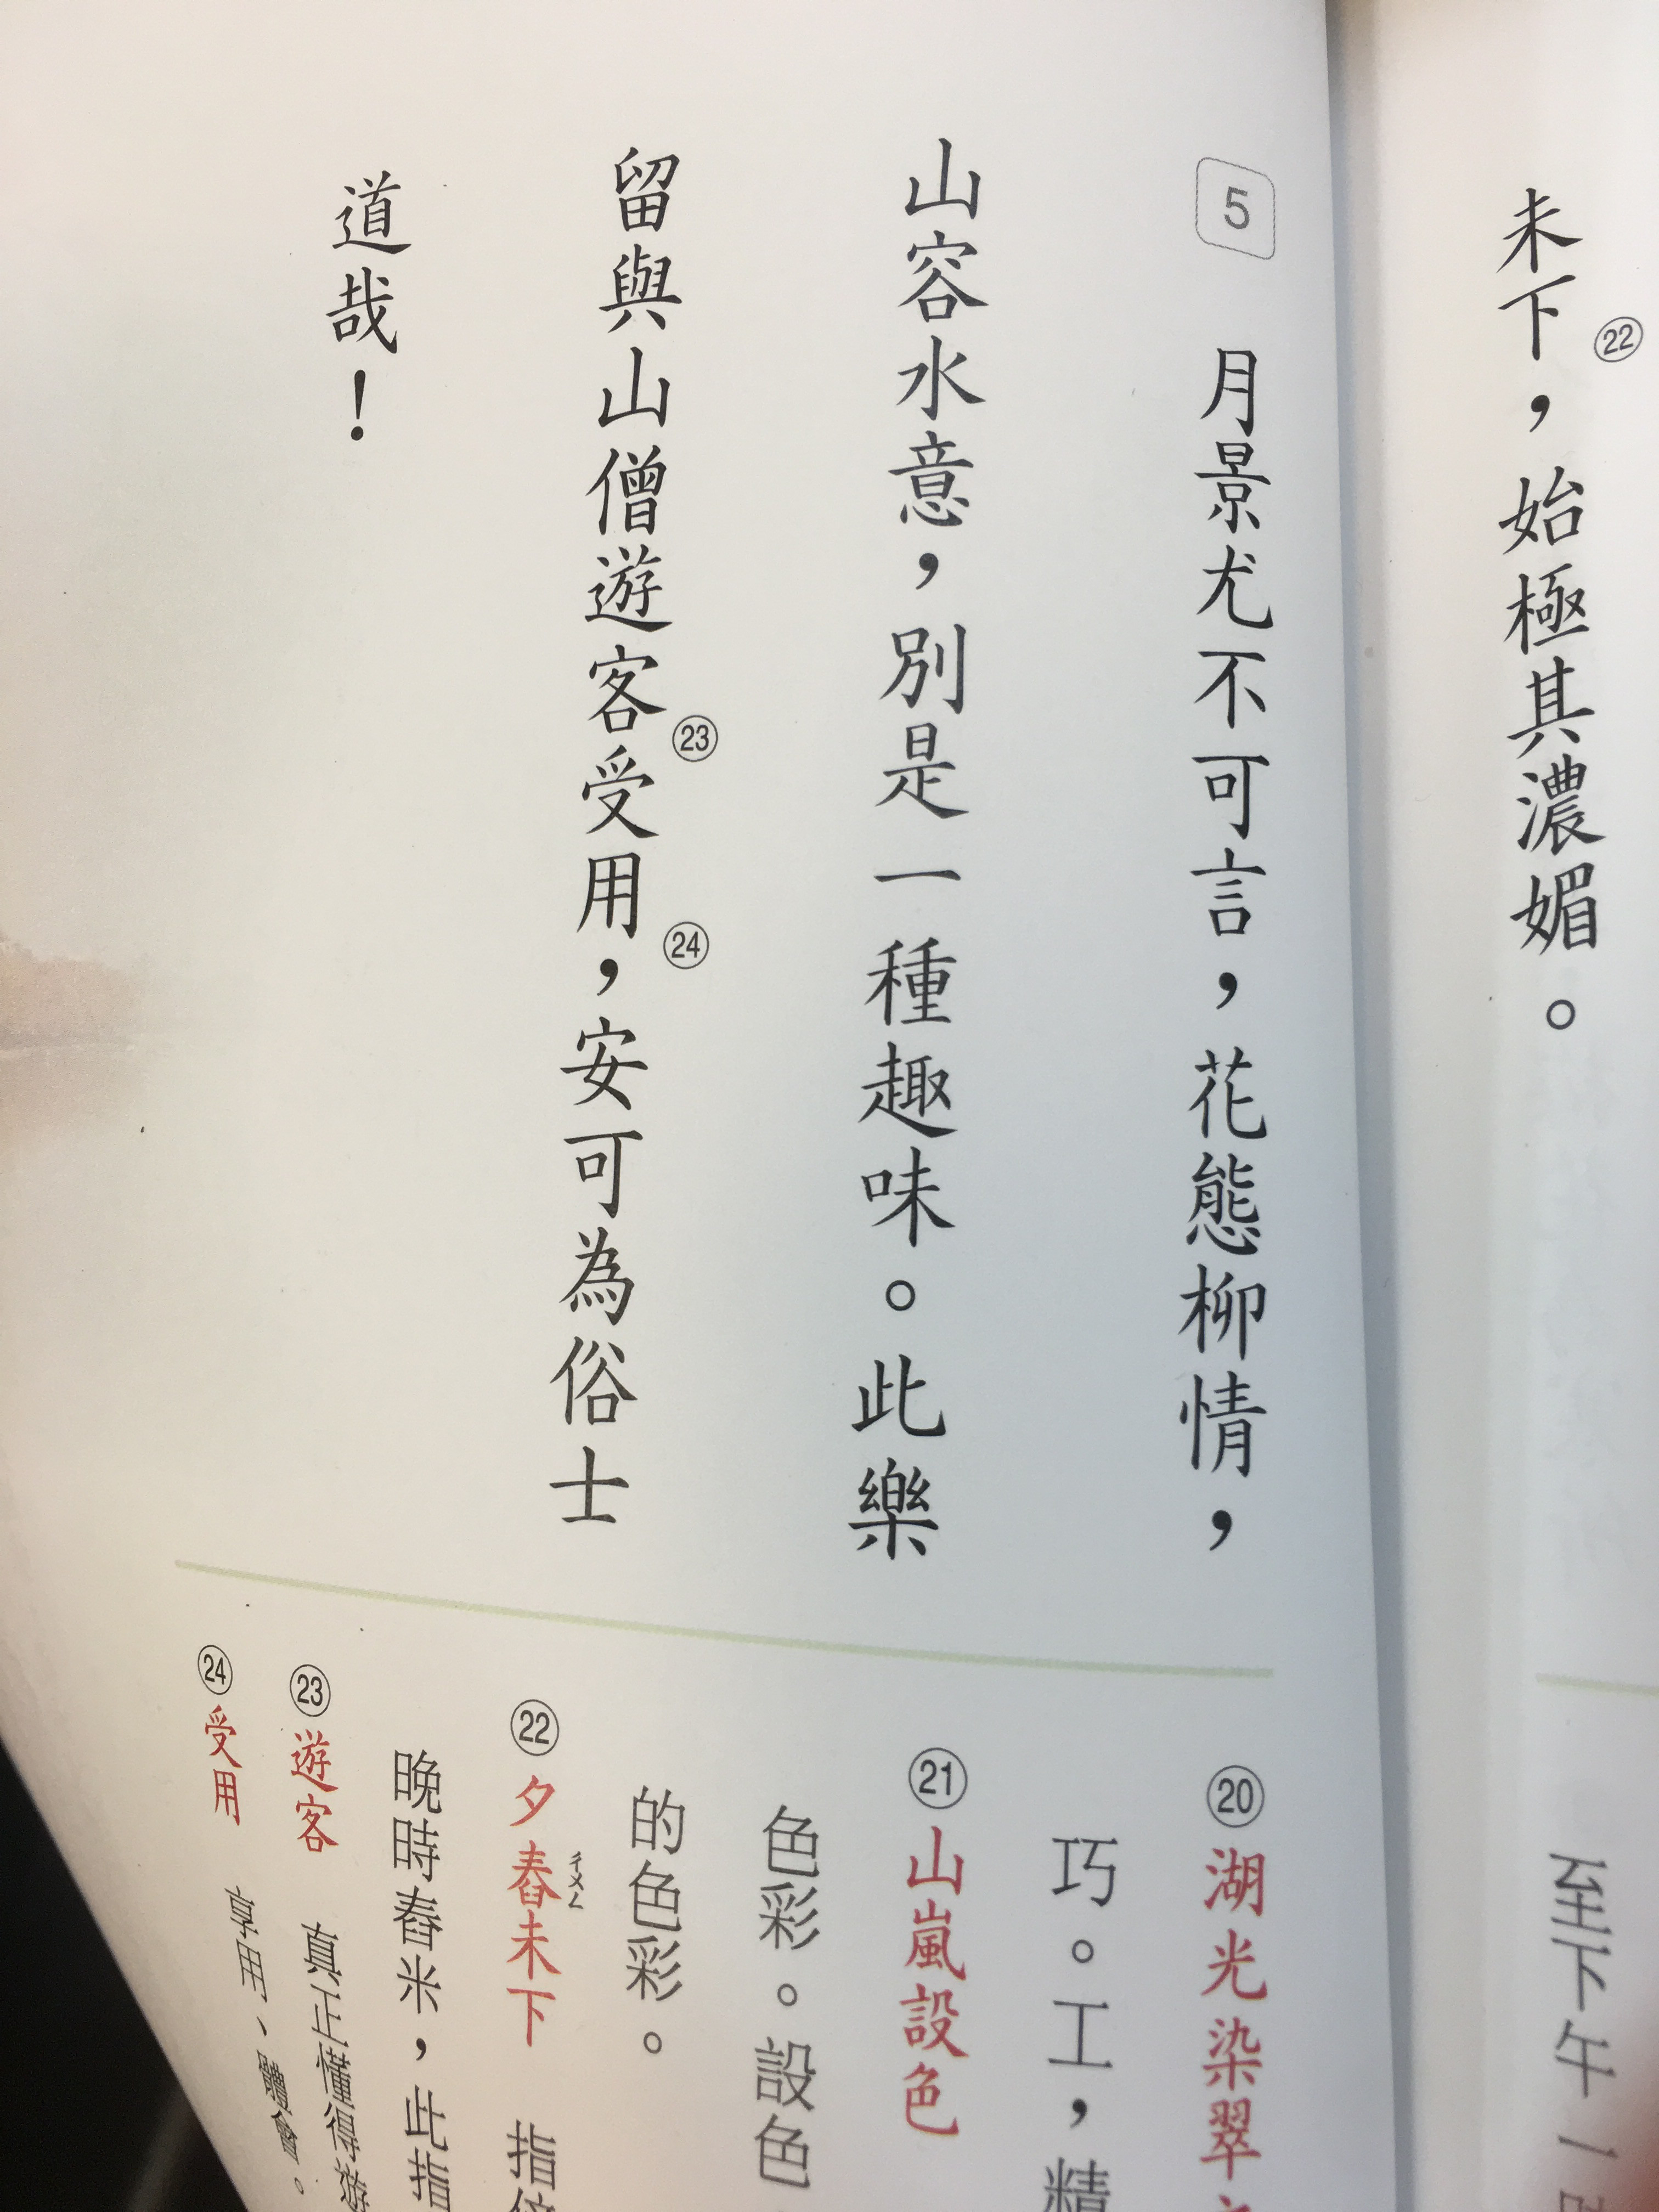 未下，始極其濃媚。
㉒
5
月景尤不可言，花態柳情，
山容水意，別是一種趣味。此樂
留與山僧遊客受用，安可為俗士
㉓
㉔
道哉！
至下午一
⑳湖光染翠之
巧。工，精
㉑山嵐設色
色彩。設色
的色彩。
㉒夕舂未下 指
ㄔㄨㄥ
晚時舂米，此指
㉓遊客 真正懂得遊
㉔受用 享用、體會。